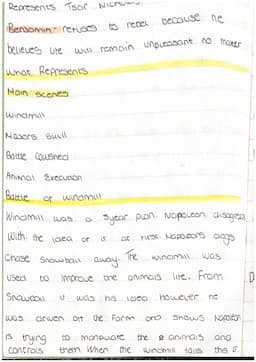 Represents Tsar Nichol
Benjamin- refuses to rebel because he
believes life will remain unpleasant no mater
what. Represents
Main scenes
Windmill
Majors Skull
Battle Cowshed
Animal Execution
Battle of windmill
Windmill was a 5year plan. Napoleon disagrees
with the idea of it at first. Napoleons dogs
Chase Snowball away. The windmill was
used to improve the animals life. From
Snowball it was his idea however he
was driven off the farm and shows Napoleon
is trying to manipulate the animals and
controls them When the windmill falls this is